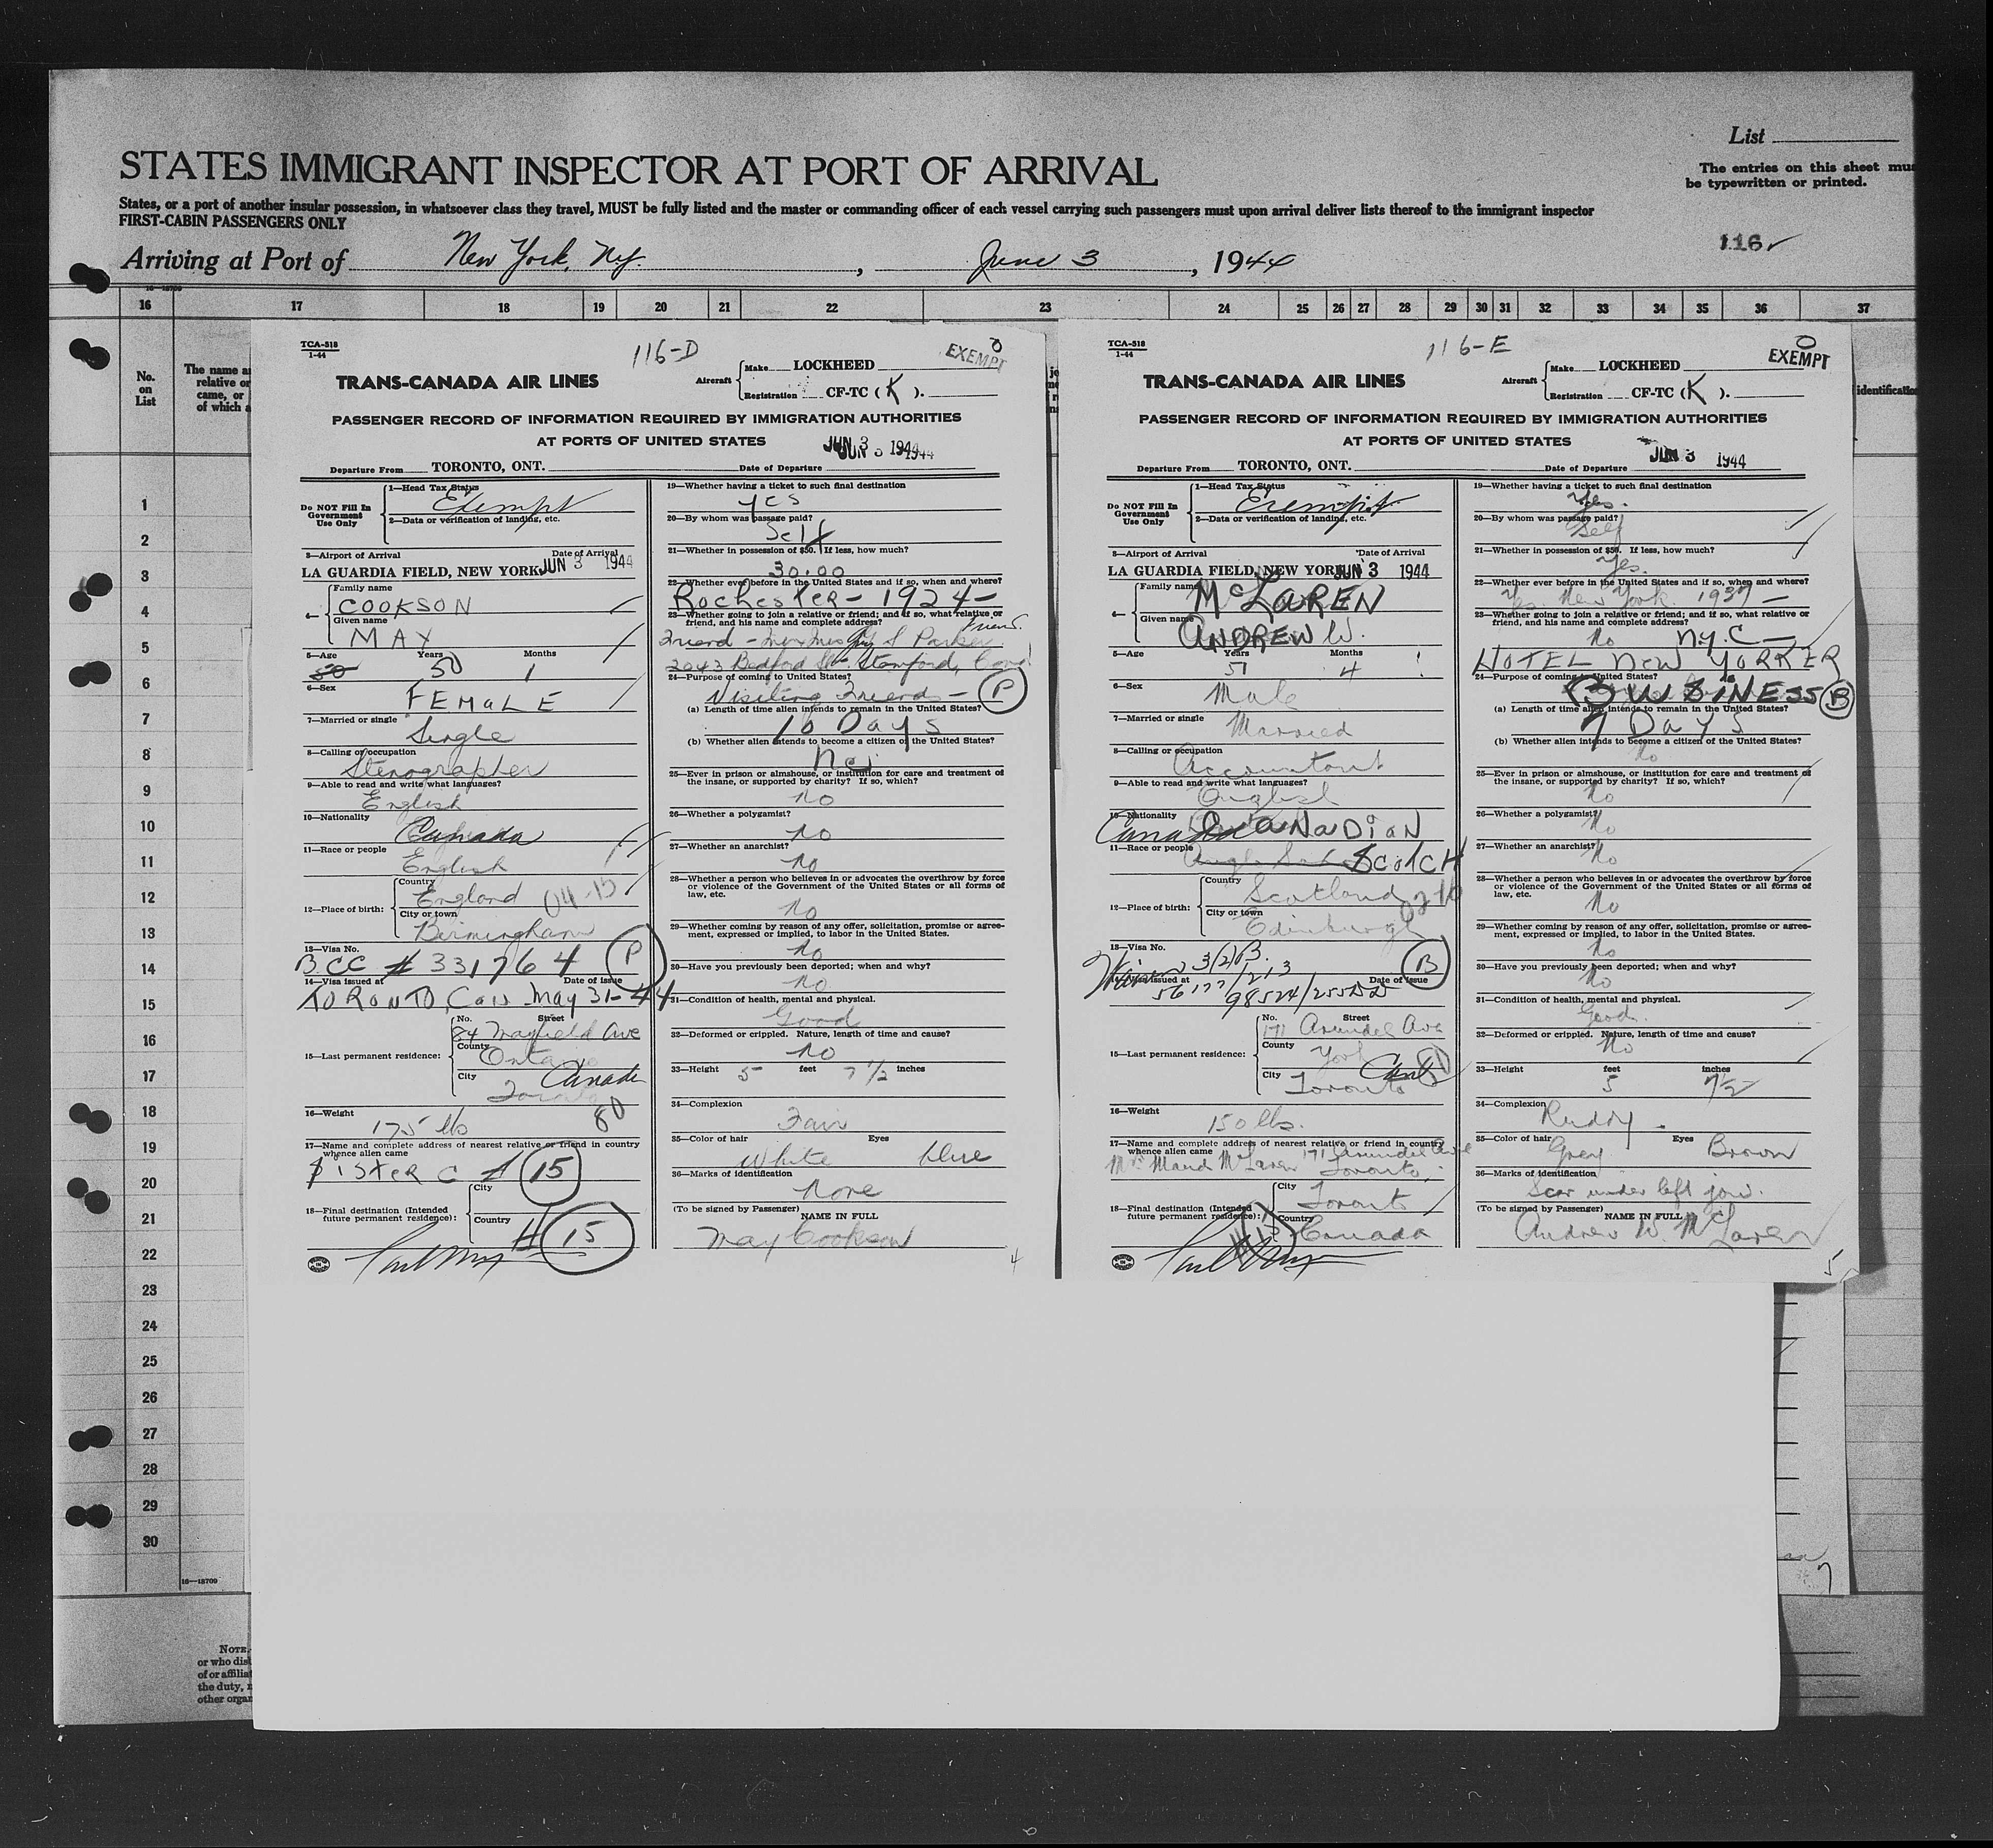 List
The entries on this sheet mu
be typewritten or printed.
STATES IMMIGRANT INSPECTOR AT PORT OF ARRIVAL
States, or a port of another insular possession, in whatsoever class they travel, MUST be fully listed and the master or commanding officer of each vessel carrying such passengers must upon arrival deliver lists thereof to the immigrant inspector
FIRST-CABIN PASSENGERS ONLY
116
Arriving at Port of New York, Ny. , June 3 , 1944
16—18709
16 17 18 19 20 21 22 23 24 25 26 27 28 29 30 31 32 33 34 35 36 37
No.
on
List
The name a
relative or
came, or
of which a
identification
1
2
3
4
5
6
7
8
9
10
11
12
13
14
15
16
17
18
19
20
21
22
23
24
25
26
27
28
29
30
16—18709
NOTE.
or who dis
of or affilia
the duty,
other organ
TCA-518
1-44
116-D
EXEMPT
TRANS-CANADA AIR LINES
Aircraft
Make LOCKHEED
Registration CF-TC (K).
PASSENGER RECORD OF INFORMATION REQUIRED BY IMMIGRATION AUTHORITIES
AT PORTS OF UNITED STATES
JUN 3 1944
Departure From TORONTO, ONT. Date of Departure
Do NOT Fill In
Government
Use Only
1—Head Tax Status
Exempt
2—Data or verification of landing, etc.
3—Airport of Arrival Date of Arrival
LA GUARDIA FIELD, NEW YORK JUN 3 1944
4—
Family name
COOKSON
Given name
MAY
5—Age Years Months
50 50 1
6—Sex
FEMALE
7—Married or single
Single
8—Calling or occupation
Stenographer
9—Able to read and write what languages?
English
10—Nationality
Canada
11—Race or people
English
12—Place of birth:
Country
England 04-15
City or town
Birmingham
13—Visa No.
BCC # 331764 P
14—Visa issued at Date of issue
TORONTO, Can May 31-44
15—Last permanent residence:
No. Street
84 Mayfield Ave
County
Ontario
City Canada
Toronto
16—Weight
175 lbs 80
17—Name and complete address of nearest relative or friend in country
whence alien came
SISTER C # 15
18—Final destination (Intended
future permanent residence):
City
Country
# 15
19—Whether having a ticket to such final destination
yes
20—By whom was passage paid?
Self
21—Whether in possession of $50. If less, how much?
30.00
22—Whether ever before in the United States and if so, when and where?
Rochester - 1924 -
23—Whether going to join a relative or friend; and if so, what relative or
friend, and his name and complete address?
Friend
Friend - Parker
2043 Bedford St. Stamford, Conn
24—Purpose of coming to United States?
Visiting Friends - P
(a) Length of time alien intends to remain in the United States?
10 Days
(b) Whether alien intends to become a citizen of the United States?
No
25—Ever in prison or almshouse, or institution for care and treatment of
the insane, or supported by charity? If so, which?
no
26—Whether a polygamist?
no
27—Whether an anarchist?
no
28—Whether a person who believes in or advocates the overthrow by force
or violence of the Government of the United States or all forms of
law, etc.
no
29—Whether coming by reason of any offer, solicitation, promise or agree-
ment, expressed or implied, to labor in the United States.
no
30—Have you previously been deported; when and why?
no
31—Condition of health, mental and physical.
Good
32—Deformed or crippled. Nature, length of time and cause?
no
33—Height 5 feet 7 1/2 inches
34—Complexion
Fair
35—Color of hair Eyes
White blue
36—Marks of identification
none
(To be signed by Passenger)
NAME IN FULL
May Cookson
4
TCA-518
1-44
116-E
EXEMPT
TRANS-CANADA AIR LINES
Aircraft
Make LOCKHEED
Registration CF-TC (K).
PASSENGER RECORD OF INFORMATION REQUIRED BY IMMIGRATION AUTHORITIES
AT PORTS OF UNITED STATES
JUN 3 1944
Departure From TORONTO, ONT. Date of Departure
Do NOT Fill In
Government
Use Only
1—Head Tax Status
Exempt
2—Data or verification of landing, etc.
3—Airport of Arrival Date of Arrival
LA GUARDIA FIELD, NEW YORK JUN 3 1944
4—
Family name
McLAREN
Given name
ANDREW W.
5—Age Years Months
51 4
6—Sex
Male
7—Married or single
Married
8—Calling or occupation
Accountant
9—Able to read and write what languages?
English
10—Nationality
Canada CANADIAN
11—Race or people
SCOTCH
12—Place of birth:
Country
Scotland
City or town
Edinburgh
13—Visa No.
3(2)B. B
14—Visa issued at Date of issue
15—Last permanent residence:
No. Street
171 Arundel Ave
County
York
City Can
Toronto
16—Weight
150 lbs.
17—Name and complete address of nearest relative or friend in country
whence alien came 171 Arundel Ave
Mrs Maud McLaren Toronto
18—Final destination (Intended
future permanent residence):
City
Toronto
Country
Canada
#15
19—Whether having a ticket to such final destination
Yes.
20—By whom was passage paid?
Self
21—Whether in possession of $50. If less, how much?
Yes.
22—Whether ever before in the United States and if so, when and where?
Yes. New York. 1937 -
23—Whether going to join a relative or friend; and if so, what relative or
friend, and his name and complete address?
No N.Y.C -
HOTEL NEW YORKER
24—Purpose of coming to United States?
BUSINESS B
(a) Length of time alien intends to remain in the United States?
7 Days
(b) Whether alien intends to become a citizen of the United States?
No
25—Ever in prison or almshouse, or institution for care and treatment of
the insane, or supported by charity? If so, which?
No
26—Whether a polygamist?
No
27—Whether an anarchist?
No
28—Whether a person who believes in or advocates the overthrow by force
or violence of the Government of the United States or all forms of
law, etc.
No
29—Whether coming by reason of any offer, solicitation, promise or agree-
ment, expressed or implied, to labor in the United States.
No
30—Have you previously been deported; when and why?
No
31—Condition of health, mental and physical.
Good.
32—Deformed or crippled. Nature, length of time and cause?
No
33—Height feet inches
5 7 1/2
34—Complexion
Ruddy.
35—Color of hair Eyes
Grey Brown
36—Marks of identification
Scar under left jaw.
(To be signed by Passenger)
NAME IN FULL
Andrew W. McLaren
5
7